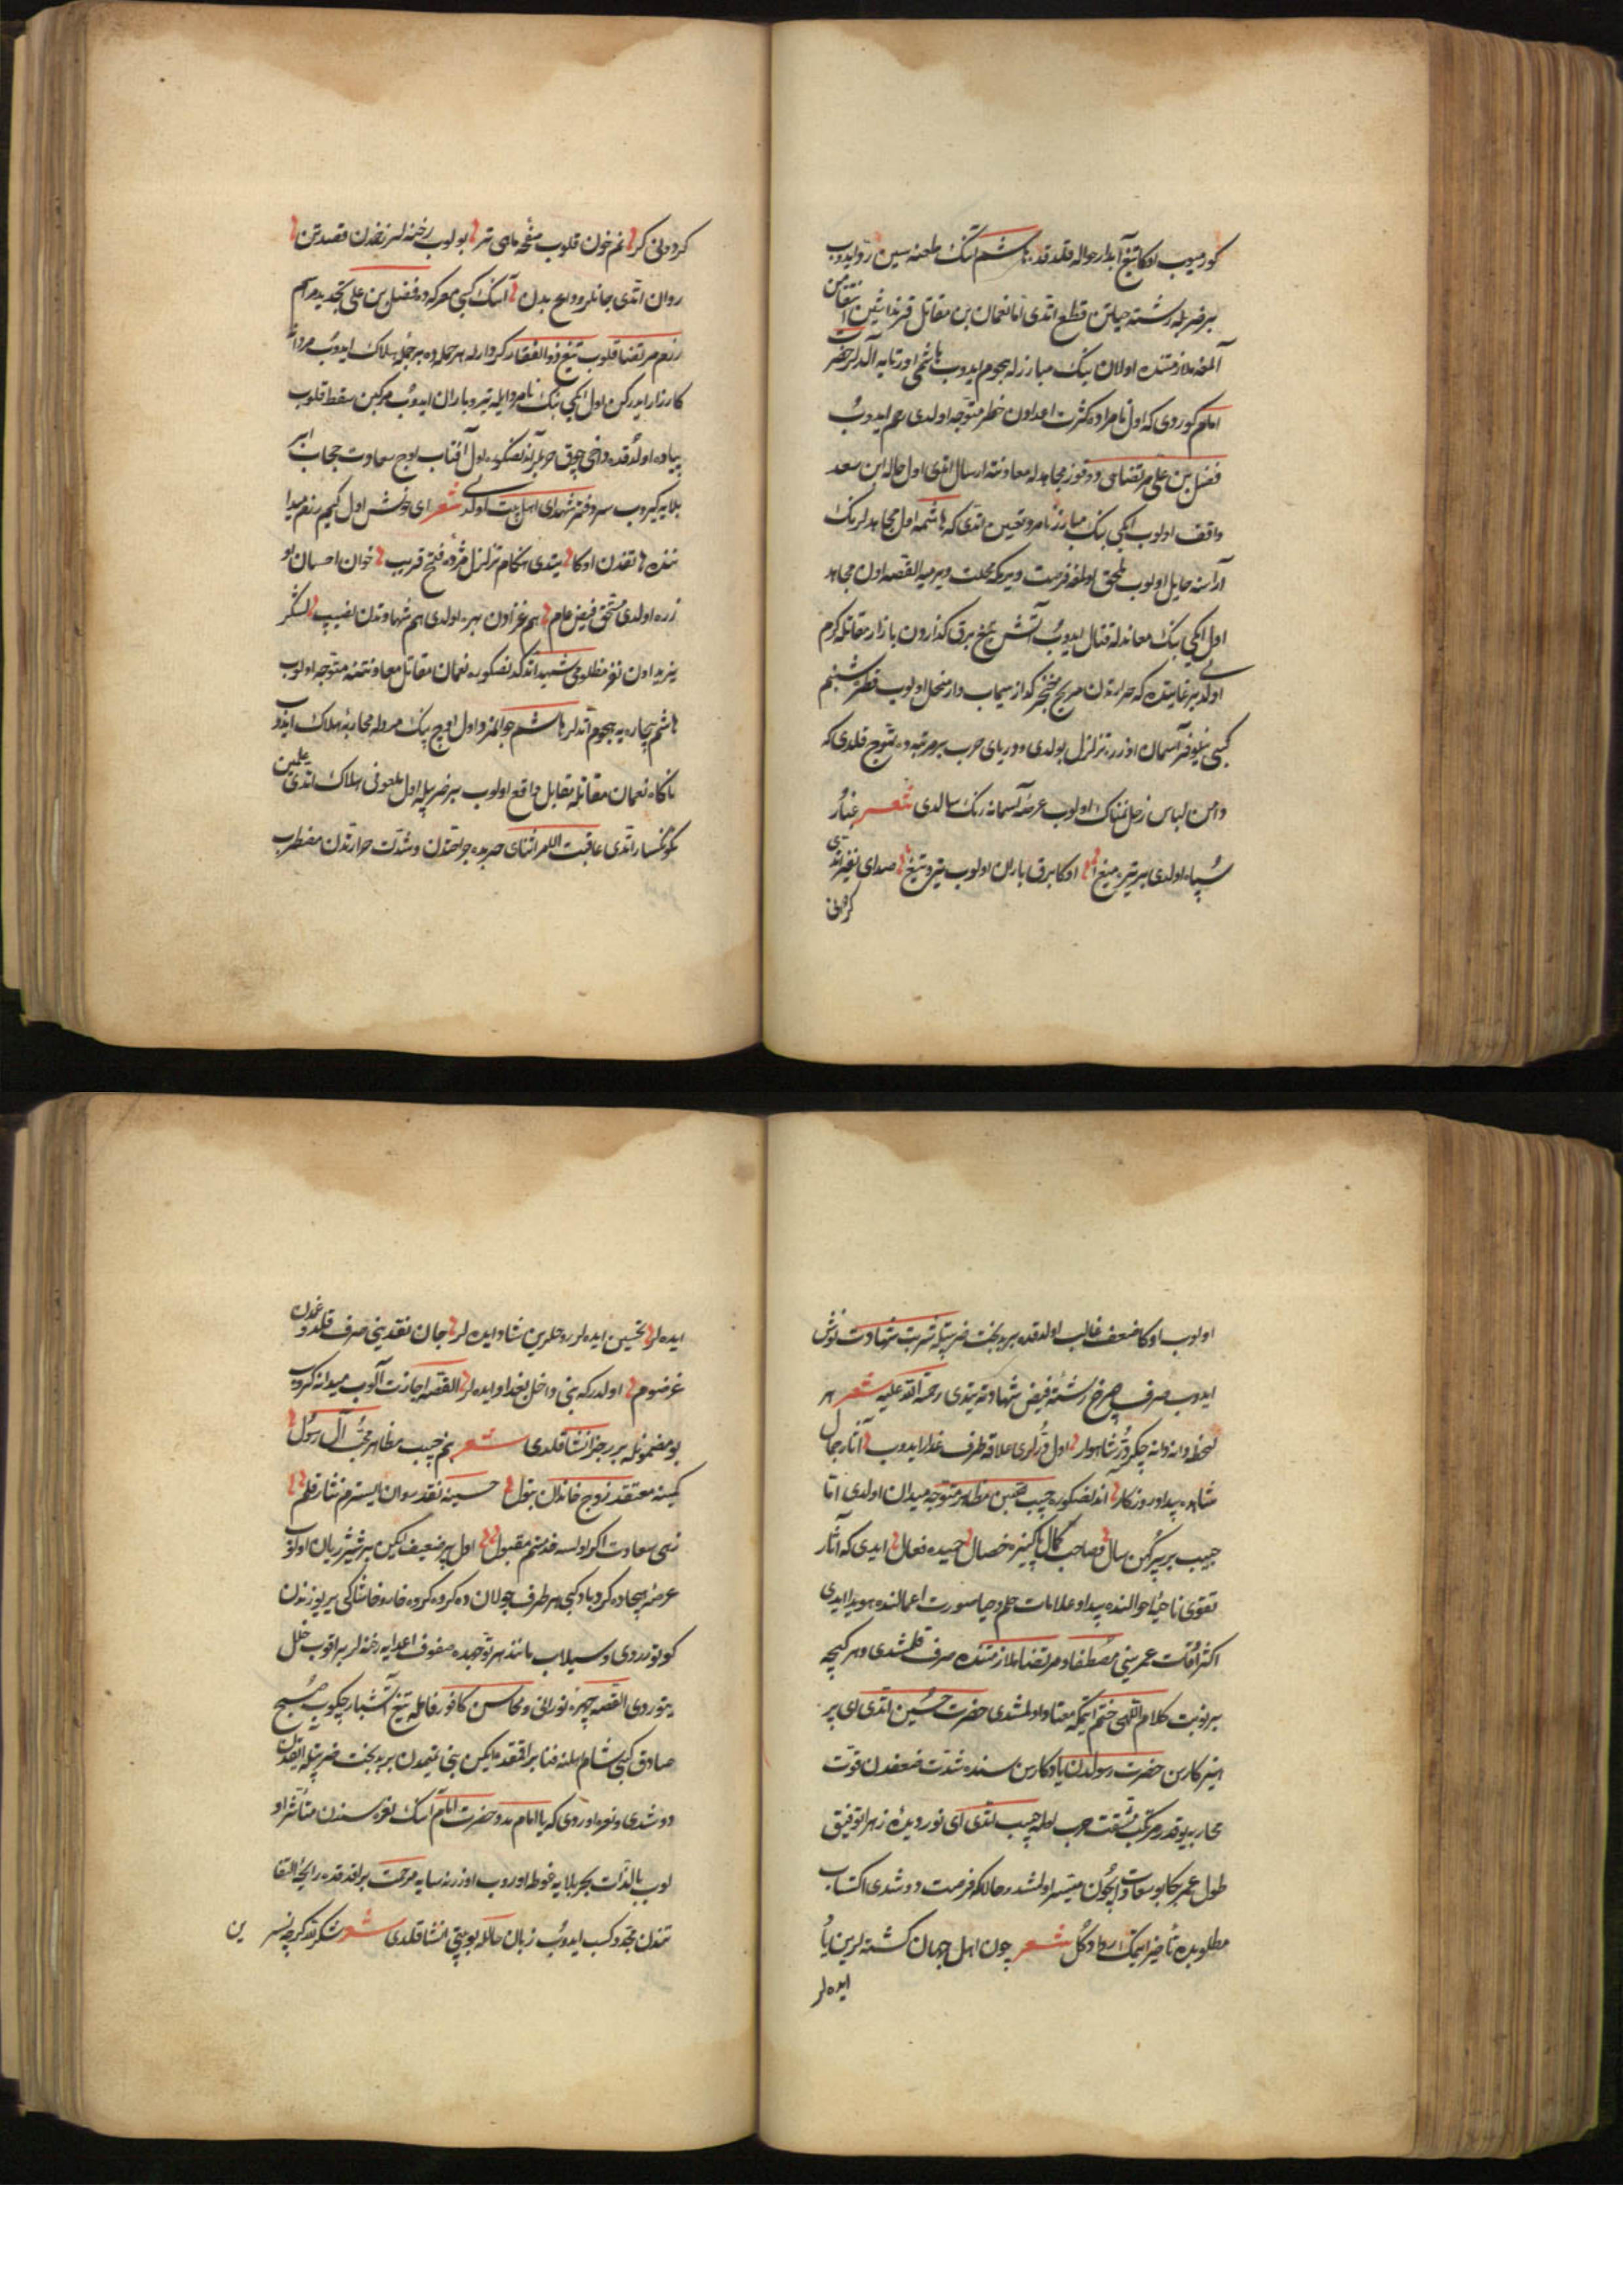 كورميوب اوكا تيغ آبدار حواله قلدقده هاشم انك طعنه سين رد ايدوب
بر ضربله رشته حياتن قطع اتدى اما نعمان بن مقاتل قرنداشين انتقامن
آلمغه ملازمتنده اولان بيك مبارزله هجوم ايدوب هاشمى اورتايه آلدلر حضرت
امام كوردى كه اول نامراده كثرت اعدادن خطر متوجه اولدى رحم ايدوب
فضل بن على مرتضايى و دوقوز مجاهدله معاونته ارسال اتدى اول حاله ابن سعد
واقف اولوب ايكى بيك مبارز نامرد تعيين اتدى كه هاشمه اول مجاهدلرنك
آراسنه حايل اولوب ملحق اولمغه فرصت ويرمكه مهلت ويرميه القصه اون مجاهد
اول ايكى بيك معاندله قتال ايدوب آتش تيغ برق كذاردن بازار مقاتله كرم
اولدى بر غايتده كه حرارتدن مريخ خنجر كذار سيماب وار منحل اولوب قطره شبنم
كبى نيلوفر آسمان اوزره تزلزل بولدى و درياى حرب بر مرتبه ده تموج قلدى كه
دامن لباس زحل نمناك اولوب عرصه آسمانه رنك سالدى شعر غبار
سپاه اولدى بر تيره ميغ اوكا برق باران اولوب تير و تيغ صداى نفير اتدى
كردونى
كردونى كر نم خون قلوب صفحه ماهى تر بولوب رخنه لر زخمدن قصر تن
روان اتدى جانلر وداع بدن آنك كبى معركه ده فضل بن على تجديد مراسم
رزم مرتضا قلوب تيغ ذوالفقار كردارله هر حمله ده بر جمله هلاك ايدوب مردانه
كارزار ايدركن اول ايكى بيك نامرد ايله تيرباران ايدوب مركبن سقط قلوب
پياده اولدقده داخى چوق حربلر اندكنصكره اول آفتاب اوج سعادت حجاب ابر
بلايه كيروب سردفتر شهداى اهل بيت اولدى شعر اى خوش اول كيم رزم ميدا
ننده هاتفدن اوكا يتدى هنكام تزلزل مژده فتح قريب خوان احسان او
زره اولدى مستحق فيض عام هم غزادن بهره اولدى هم شهادتدن نصيب لشكر
يزيد اون نفر مظلومى شهيد اتدكدنصكره نعمان مقاتل معاونتنه متوجه اولوب
هاشم بيچاره يه هجوم اتدلر هاشم جوانمرد اول اوچ بيك مردله محاربه هلاك ايدوب
ناكاه نعمان مقاتله مقابل واقع اولوب بر ضربله اول ملعونى هلاك اتدى علمين
نكونسار اتدى عاقبت الامر اثناى حربده جراحتدن و شدت حرارتدن مضطرب
اولوب اوكا ضعف غالب اولدقده بر بدبخت ضربتيله شربت شهادت نوش
ايدوب صرف چرخ رشته فيض شهادته يتدى رحمة الله عليه شعر هر
لحظه دانه دانه چكر در شاهوار اول درلرى علاقه طرف عذار ايدوب آثار جمال
شاهده پيدا و روزكار آندنصكره حبيب بن مظاهر متوجه ميدان اولدى اما
حبيب بر پير كهن سال و صاحب كمال پاكيزه خصال حميده فعال ايدى كه آثار
تقوى ناصيه احوالنده پيدا و علامات حلم و حيا صورت اعمالنده هويدا ايدى
اكثر اوقات عمرينى مصطفا و مرتضا ملازمتنده صرف قلمشدى و هر كيجه
بر نوبت كلام اللهى ختم ايتمكه معتاد اولمشدى حضرت حسين اتدى اى پير
پرهيزكارسن حضرت رسولدن يادكارسن سنده شدت ضعفدن قوت
محاربه يوقدر مرتكب مشقت حرب اولمه حبيب اتدى اى نور ديده زهرا توفيق
طول عمر بكا بو سعادت ايچون ميسر اولمشدر حالا كه فرصت دوشدى اكتساب
مطلوبده تأخير ايتمك روا دكل شعر چون اهل جهان كشته لرين ياد
ايده لر
ايده لر تحسين ايده لر روحلرين شاد ايده لر جان نقدينى صرف قلدوغمدن
غرضوم اولدر كه بنى داخل تعداد ايده لر القصه اجازت آلوب ميدانه كيروب
بو مضمونله بر رجز انشا قلدى شعر بنم حبيب مظاهر محب آل رسول
كمينه معتقد زوج خاندان بتول حسينه نقد روان ايسترم نثار قلم
زهى سعادت اكر اولسه خدمتم مقبول اول پير ضعيف ليكن بر شير ژيان اولوب
عرصه هيجاده كردباد كبى هر طرف جولان ده كروه كروه خار و خاشاكى ير يوزندن
كوتوردى و سيلاب مانند هر توجهده صفوف اعدايه رخنه لر براقوب خلل
يتوردى القصه چهره نورانى و محاسن كافور فامله تيغ آتشبار چكوب صبح
صادق كبى شام اهلنه فنا براقمقده ليكن بنى تميمدن بر بدبخت ضربتيله اتدن
دوشدى و نعره اوردى كه يا امام مدد حضرت امام آنك نعره سندن متأثر او
لوب بالذات بحر بلايه غوطه اوروب اوزرينه سايه مرحمت براقدقده رايحه التفا
تندن مجدد كسب ايدوب زبان حالله بو بيتى انشا قلدى شعر شكر كه كرچه نسر
ين